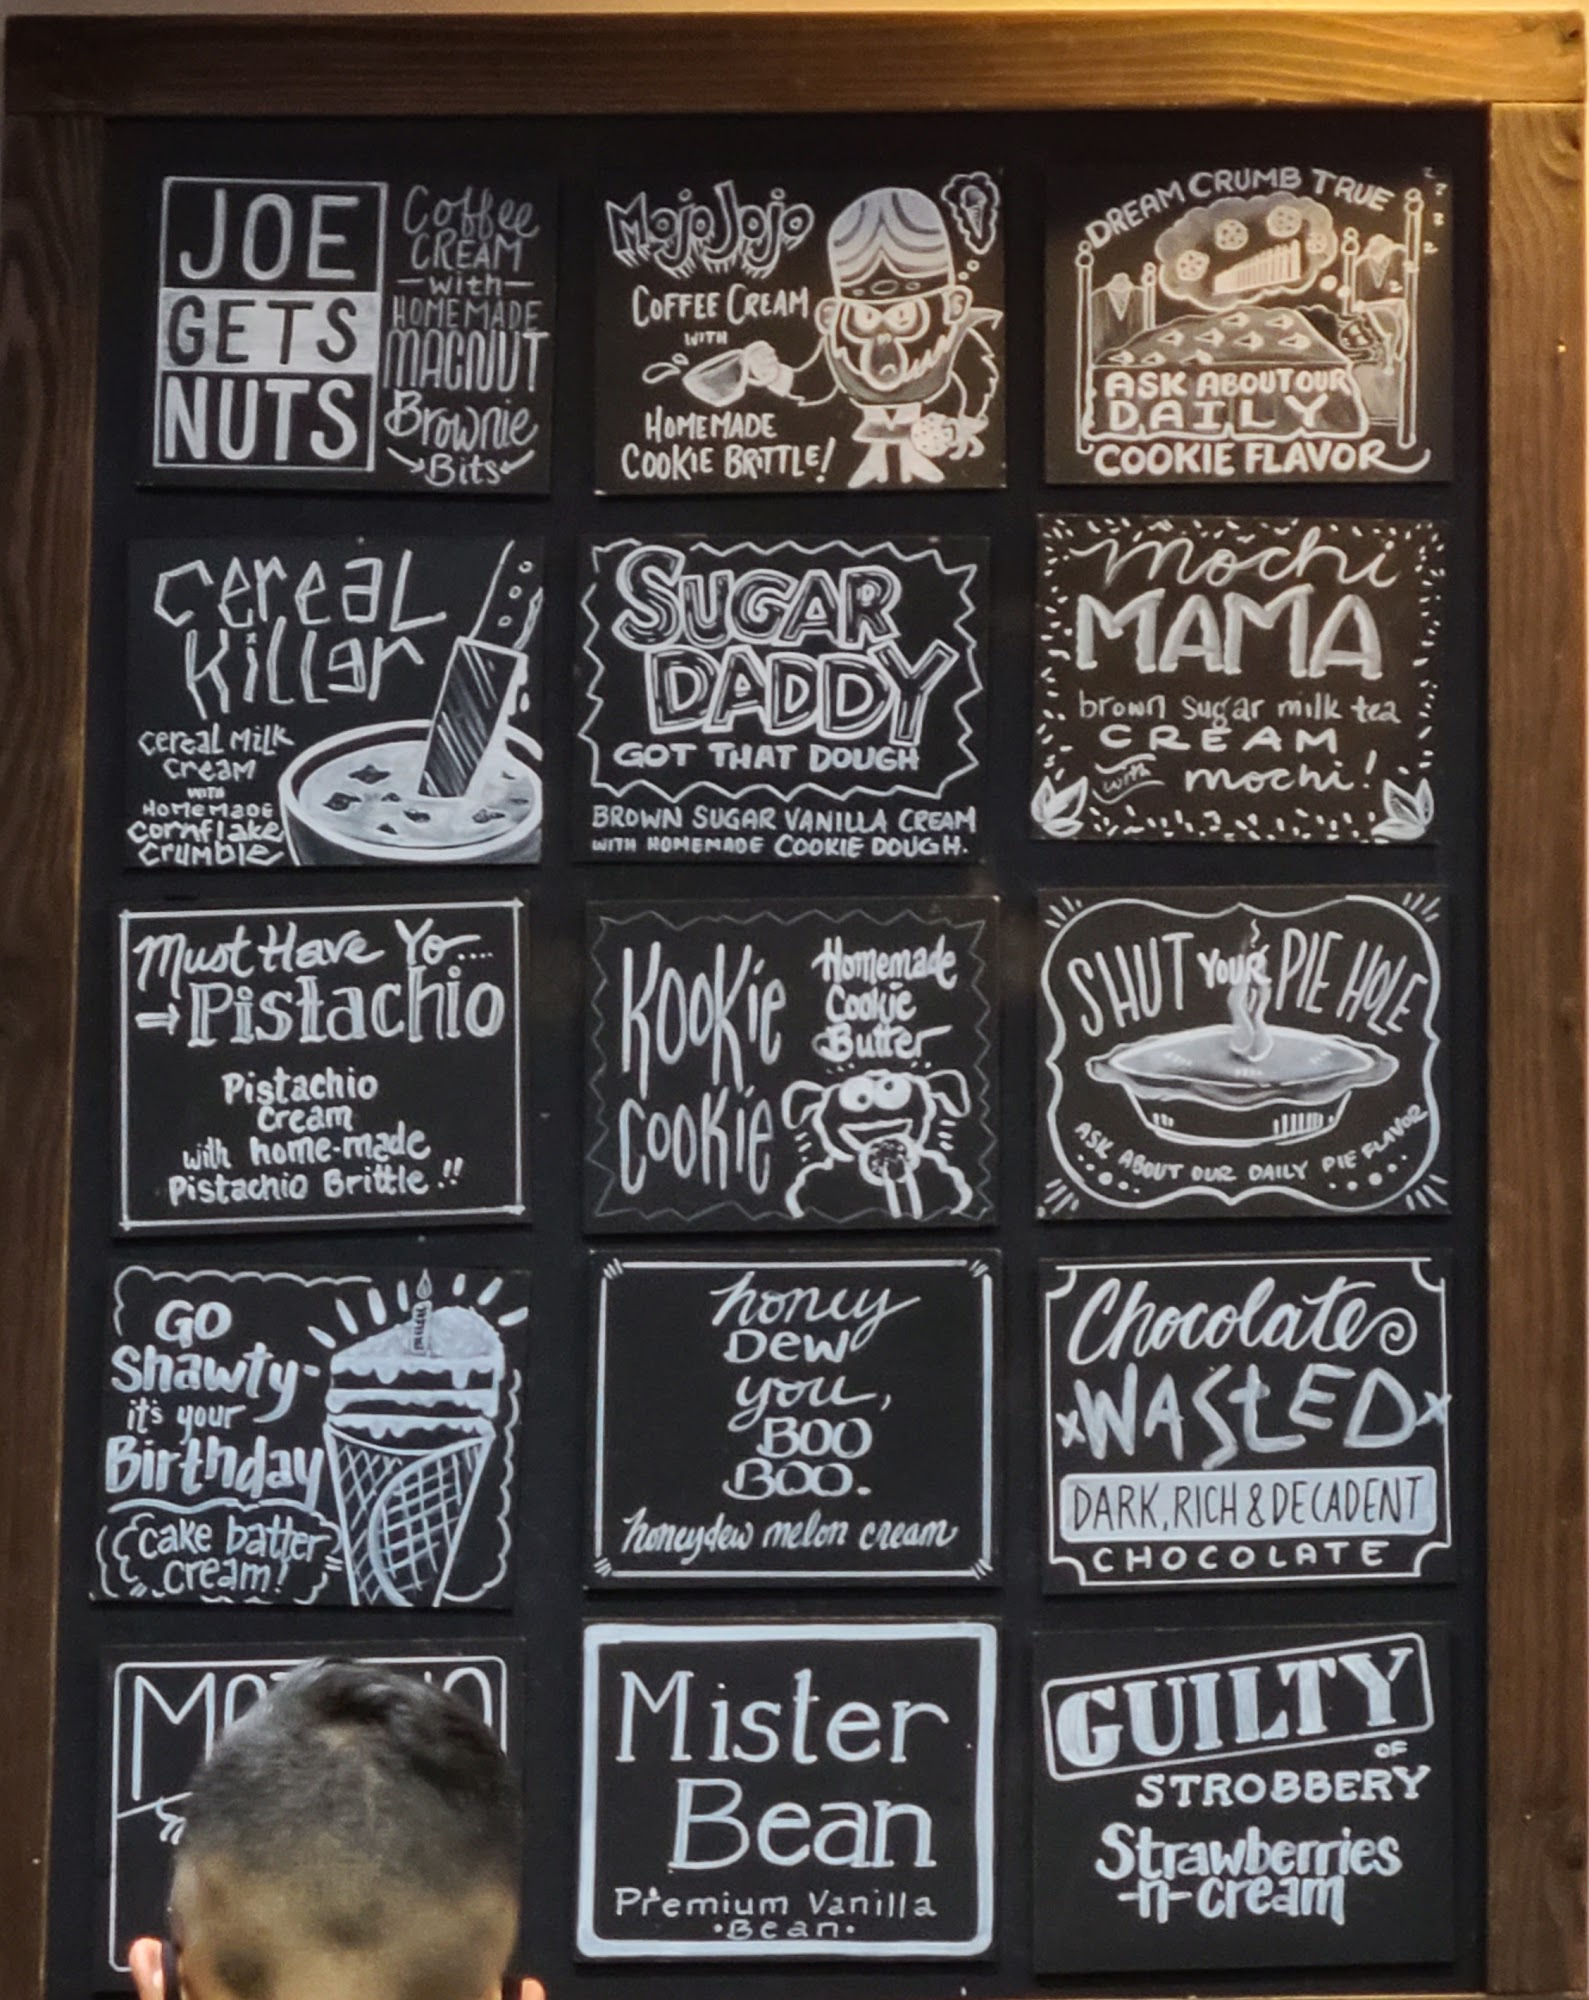 JOE
GETS
NUTS
Coffee
CREAM
with
HOMEMADE
MACNUT
Brownie
Bits
MojoJojo
COFFEE CREAM
WITH
HOMEMADE
COOKIE BRITTLE!
DREAM CRUMB TRUE
ASK ABOUT OUR
DAILY
COOKIE FLAVOR
cereal
Killer
cereal Milk
cream
WITH
HOMEMADE
cornflake
crumble
SUGAR
DADDY
GOT THAT DOUGH
BROWN SUGAR VANILLA CREAM
WITH HOMEMADE COOKIE DOUGH.
mochi
MAMA
brown sugar milk tea
CREAM
with mochi!
Must Have Yo....
Pistachio
Pistachio
cream
with home-made
Pistachio Brittle!!
KOOKie
COOKIE
Homemade
Cookie
Butter
SHUT YOUR PIE HOLE
ASK ABOUT OUR DAILY PIE FLAVOR
GO
Shawty-
it's your
Birthday
cake batter
cream!
honey
DEW
you,
BOO
BOO.
honeydew melon cream
Chocolate
WASTED
DARK, RICH & DECADENT
CHOCOLATE
Mister
Bean
Premium Vanilla
Bean
GUILTY
OF
STROBBERY
Strawberries
-n-cream